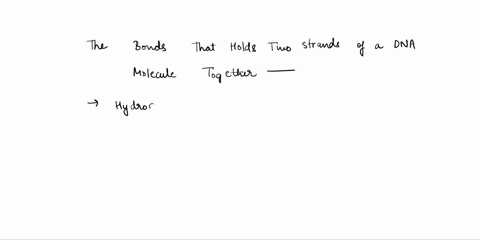 The Bonds That Holds Two strands of a DNA
Molecule Together —
→ Hydroc